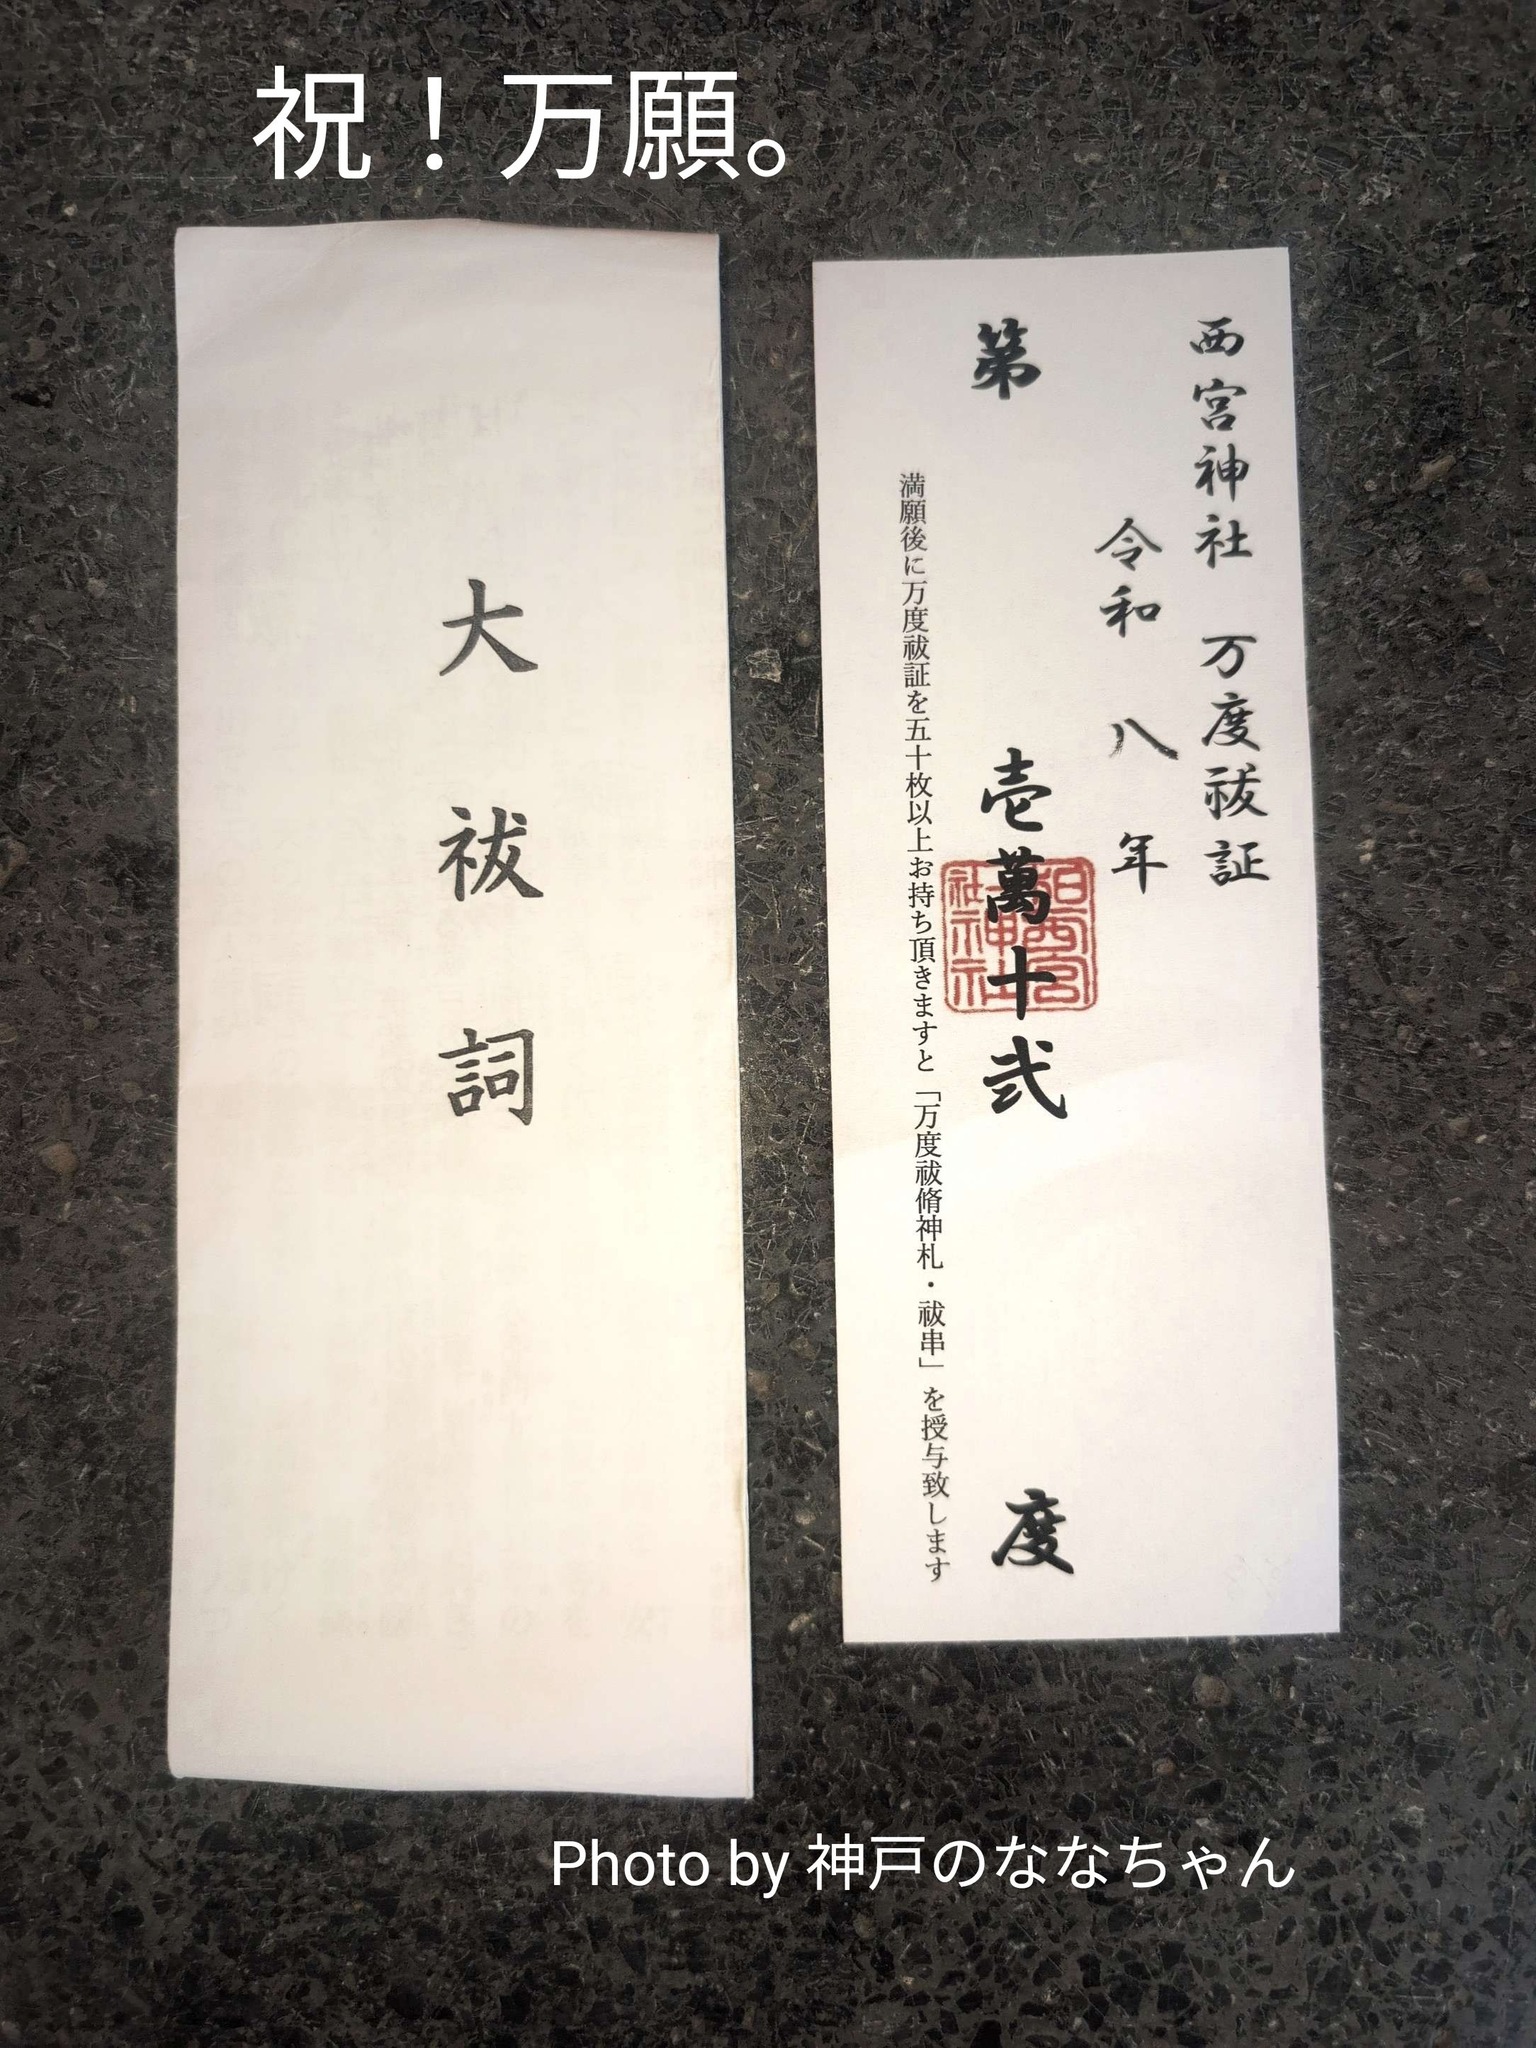 祝！万願。
西宮神社 万度祓証
令和 八 年
第 壱萬十弐 度
満願後に万度祓証を五十枚以上お持ち頂きますと「万度祓脩神札・祓串」を授与致します
大祓詞
Photo by 神戸のななちゃん